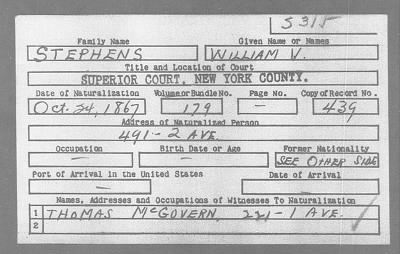 S315
Family Name Given Name or Names
STEPHENS WILLIAM V.
Title and Location of Court
SUPERIOR COURT, NEW YORK COUNTY.
Date of Naturalization Volume or Bundle No. Page No. Copy of Record No.
Oct. 24, 1867 179 — 439
Address of Naturalized Person
491 - 2 AVE.
Occupation Birth Date or Age Former Nationality
— — SEE OTHER SIDE
Port of Arrival in the United States Date of Arrival
— —
Names, Addresses and Occupations of Witnesses To Naturalization
1 THOMAS McGOVERN, 221 - 1 AVE.
2